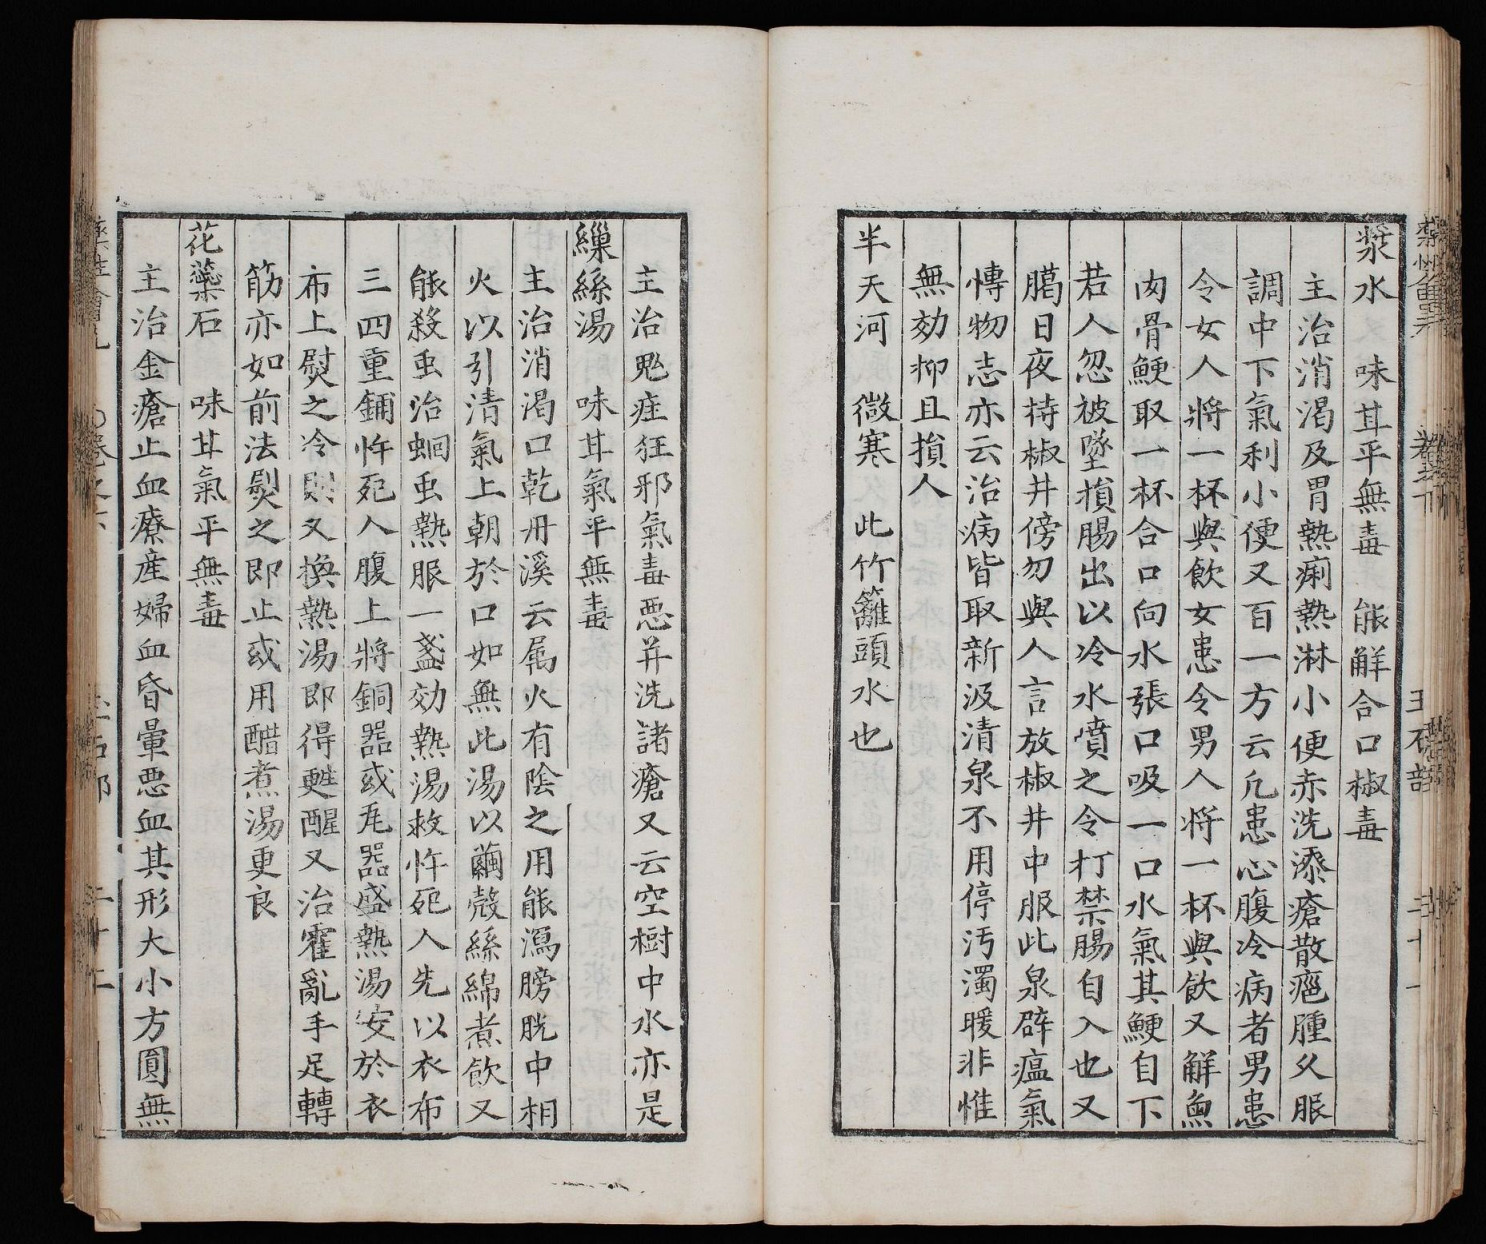 漿水　味甘平無毒　能解合口椒毒
主治消渴及胃熱痢熱淋小便赤洗漆瘡散痘腫久服
調中下氣利小便又百一方云凢患心腹冷病者男患
令女人將一杯與飲女患令男人将一杯與飲又解魚
肉骨鯁取一杯合口向水張口吸一口水氣其鯁自下
若人忽被墜損腸出以冷水噴之令打禁腸自入也又
臈日夜持椒井傍勿與人言放椒井中服此泉辟瘟氣
愽物志亦云治病皆取新汲清泉不用停汚濁暖非惟
無効抑且損人
半天河　微寒　此竹籬頭水也
主治鬼疰狂邪氣毒悪并洗諸瘡又云空樹中水亦是
繅絲湯　味甘氣平無毒
主治消渴口乾丹溪云屬火有陰之用能瀉膀胱中相
火以引清氣上朝於口如無此湯以繭殼絲綿煮飲又
能殺虫治蛔虫熱服一盞効熱湯救忤死人先以衣布
三四重鋪忤死人腹上將銅器或瓦器盛熱湯安於衣
布上熨之冷則又換熱湯即得甦醒又治霍亂手足轉
筋亦如前法熨之即止或用醋煮湯更良
花蘂石　味甘氣平無毒
主治金瘡止血療産婦血昏暈悪血其形大小方圓無